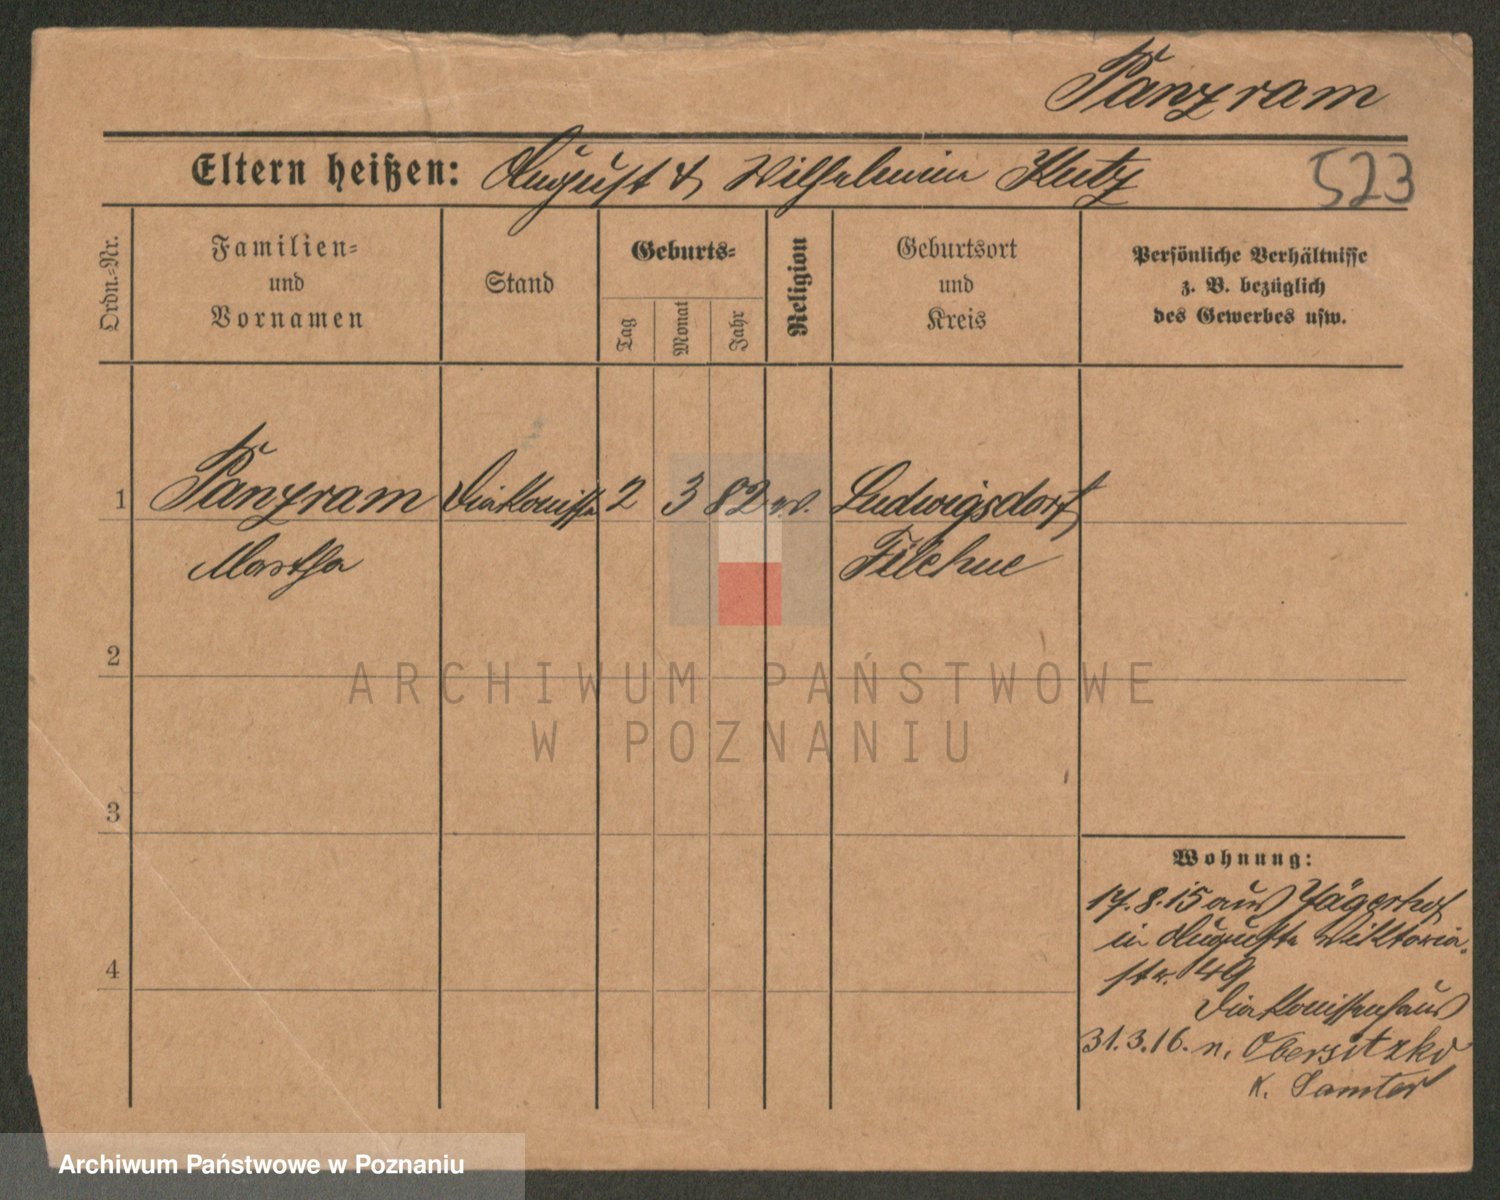 Panzram
Eltern heißen: August & Wilhelmine Kutz
523
Ordn.-Nr.
Familien-
und
Vornamen
Stand
Geburts-
Tag
Monat
Jahr
Religion
Geburtsort
und
Kreis
Persönliche Verhältnisse
z. B. bezüglich
des Gewerbes usw.
1 Panzram Diakonisse 2 3 82 ev. Ludwigsdorf
Martha Filehne
2
3
4
Wohnung:
17.8.15 aus Jägerhof
in Auguste Viktoria-
str. 49
Diakonissenhaus
31.3.16. n. Obersitzko
K. Samter
ARCHIWUM PAŃSTWOWE
W POZNANIU
Archiwum Państwowe w Poznaniu